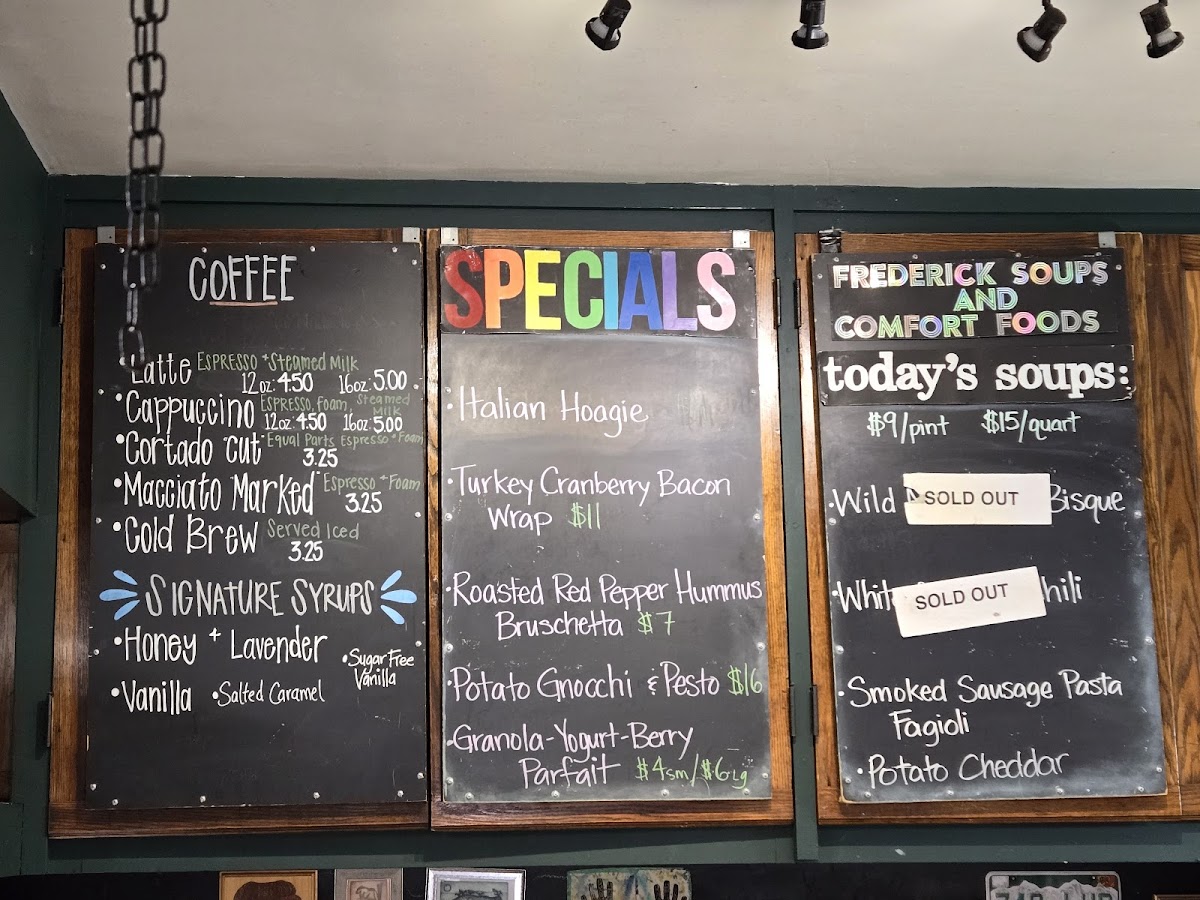 COFFEE
• Latte ESPRESSO + Steamed Milk
12 oz: 4.50 16oz: 5.00
• Cappuccino ESPRESSO, Foam, Steamed Milk
12oz: 4.50 16oz: 5.00
• Cortado cut Equal Parts Espresso + Foam
3.25
• Macciato Marked Espresso + Foam
3.25
• Cold Brew Served Iced
3.25
SIGNATURE SYRUPS
• Honey + Lavender
• Sugar Free
Vanilla
• Vanilla • Salted Caramel
SPECIALS
• Italian Hoagie
• Turkey Cranberry Bacon
Wrap $11
• Roasted Red Pepper Hummus
Bruschetta $7
• Potato Gnocchi & Pesto $16
• Granola-Yogurt-Berry
Parfait $4sm/$6Lg
FREDERICK SOUPS
AND
COMFORT FOODS
today's soups:
$9/pint $15/quart
• Wild SOLD OUT Bisque
• SOLD OUT
• Smoked Sausage Pasta
Fagioli
• Potato Cheddar